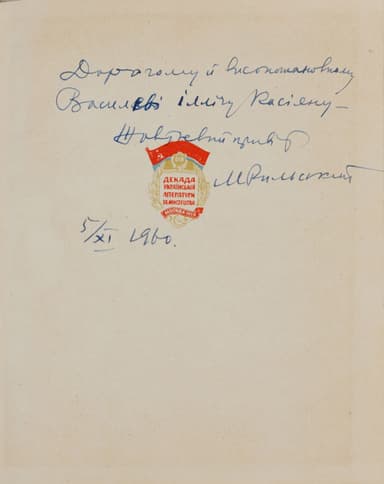 Дорогому й високошановному
Василеві Іллічу Касіяну —
Жовтневий привіт
М Рильський
ДЕКАДА
УКРАЇНСЬКОЇ
ЛІТЕРАТУРИ
ТА МИСТЕЦТВА
МОСКВА
5/XI 1960.